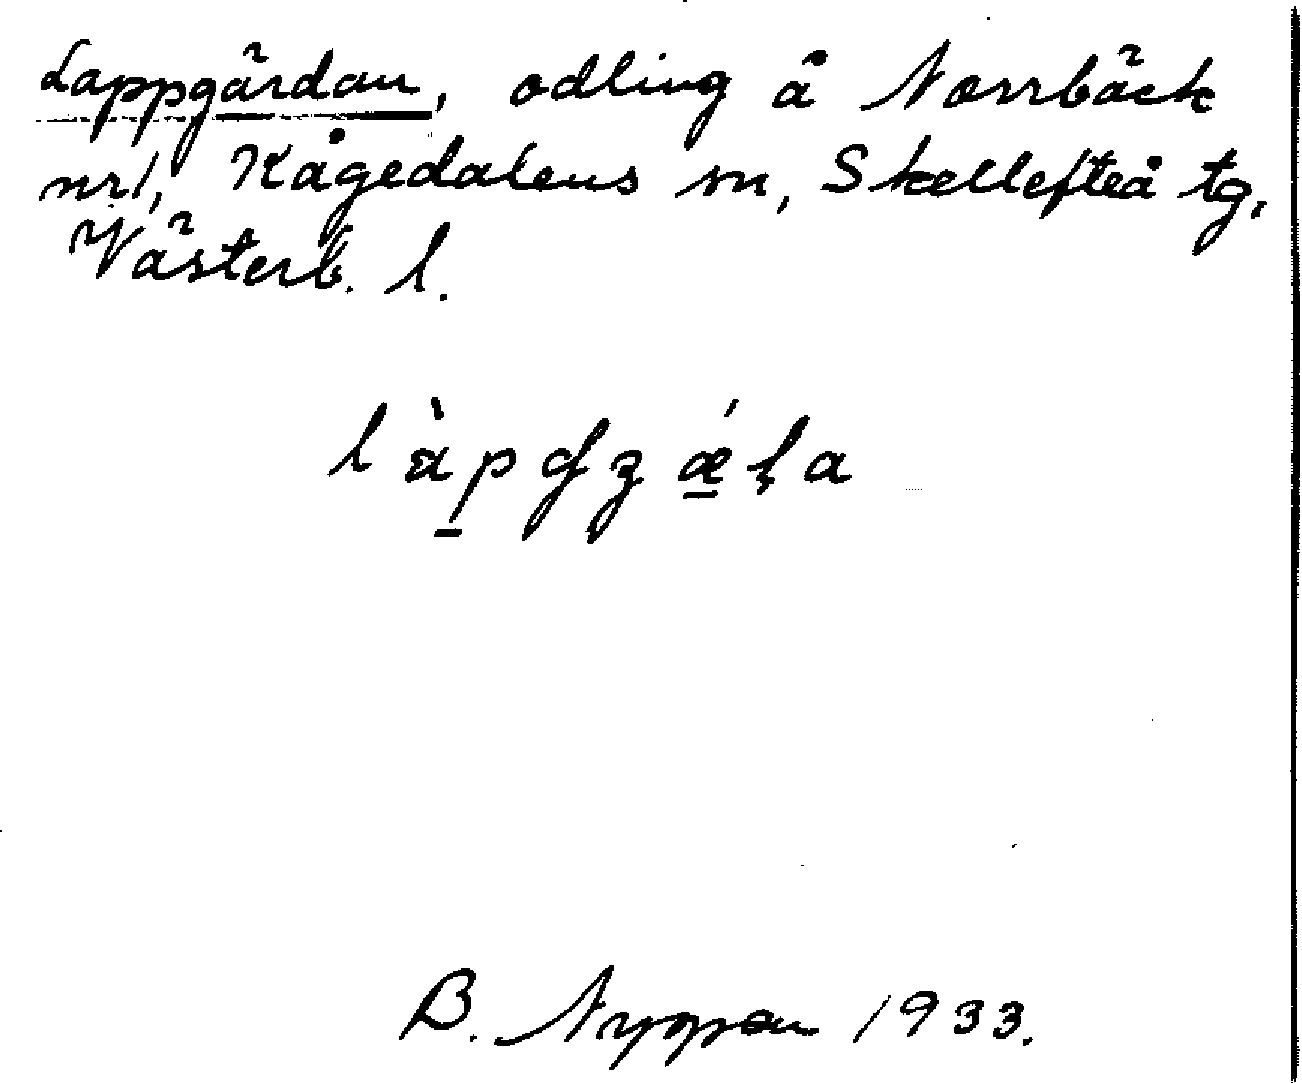 Lappgärdan, odling å Norrbäck
nr 1, Kågedalens sn, Skellefteå tg,
Västerb. l.
B. Nygren 1933.